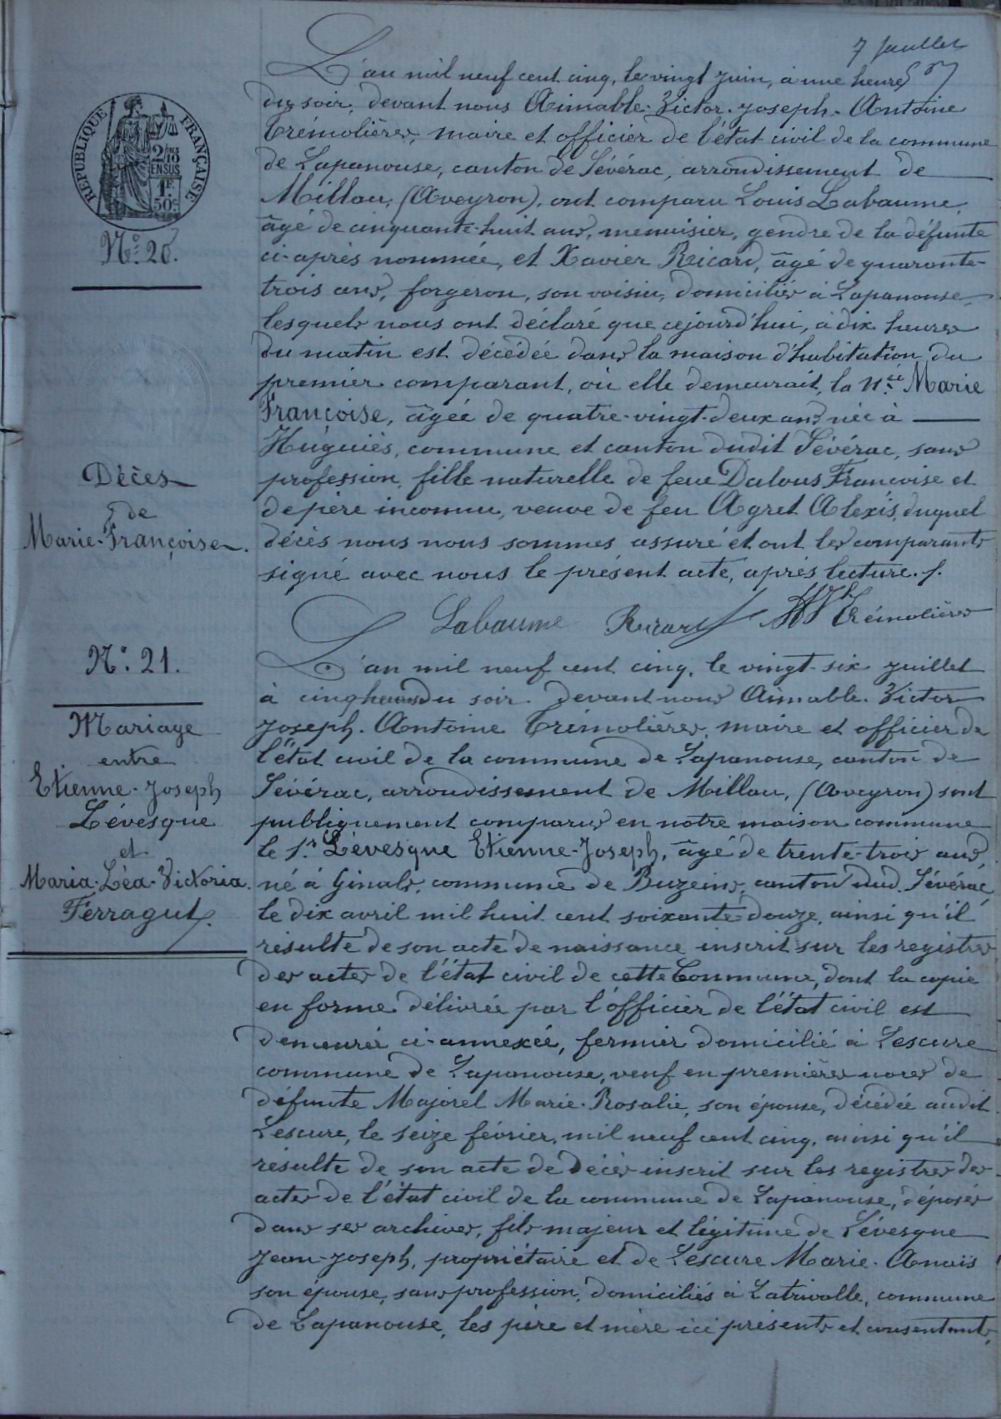 7 feuillet
RÉPUBLIQUE FRANÇAISE
2/10
EN SUS
1F.
50c
N°: 20.
L'an mil neuf cent cinq, le vingt juin, à une heure
du soir, devant nous Aimable-Victor-Joseph-Antoine
Trémolières, maire et officier de l'état civil de la commune
de Lapanouse, canton de Sévérac, arrondissement de
Millau, (Aveyron), ont comparu Louis Labaume,
âgé de cinquante-huit ans, menuisier, gendre de la défunte
ci-après nommée, et Xavier Ricard, âgé de quarante-
trois ans, forgeron, son voisin, domiciliés à Lapanouse,
lesquels nous ont déclaré que cejourd'hui, à dix heures
du matin est décédée dans la maison d'habitation du
premier comparant, où elle demeurait, la n.ée Marie
Françoise, âgée de quatre-vingt-deux ans née à
Huguiès, commune et canton dudit Sévérac, sans
profession, fille naturelle de feue Dalous Francoise et
de père inconnu, veuve de feu Agret Alexis, duquel
décès nous nous sommes assuré et ont les comparants
signé avec nous le présent acte, après lecture. f.
Décès
de
Marie-Françoise.
Labaume Ricard Trémolières
N°: 21.
Mariage
entre
Etienne-Joseph
Lévesque
et
Maria-Léa-Victoria
Férragut.
L'an mil neuf cent cinq, le vingt-six juillet
à cinq heures du soir. devant nous Aimable. Victor
Joseph. Antoine Trémolières, maire et officier de
l'état civil de la commune de Lapanouse, canton de
Sévérac, arrondissement de Millau, (Aveyron) sont
publiquement comparus en notre maison commune
le s.r Lévesque Etienne-Joseph, âgé de trente-trois ans,
né à Ginals, commune de Buzeins, canton dud. Sévérac,
le dix avril mil huit cent soixante-douze, ainsi qu'il
résulte de son acte de naissance inscrit sur les registres
des actes de l'état civil de cette Commune, dont la copie
en forme délivrée par l'officier de l'état civil est
demeurée ci-annexée, fermier domicilié à Lescure
commune de Lapanouse, veuf en premières noces de
défunte Majorel Marie-Rosalie, son épouse, décédée audit
Lescure, le seize février, mil neuf cent cinq, ainsi qu'il
résulte de son acte de décès inscrit sur les registres des
actes de l'état civil de la commune de Lapanouse, déposés
dans ses archives, fils majeur et légitime de Lévesque
Jean-Joseph, propriétaire et de Lescure Marie-Anaïs
son épouse, sans profession, domiciliés à Latrivalle, commune
de Lapanouse, les père et mère ici présents et consentants,